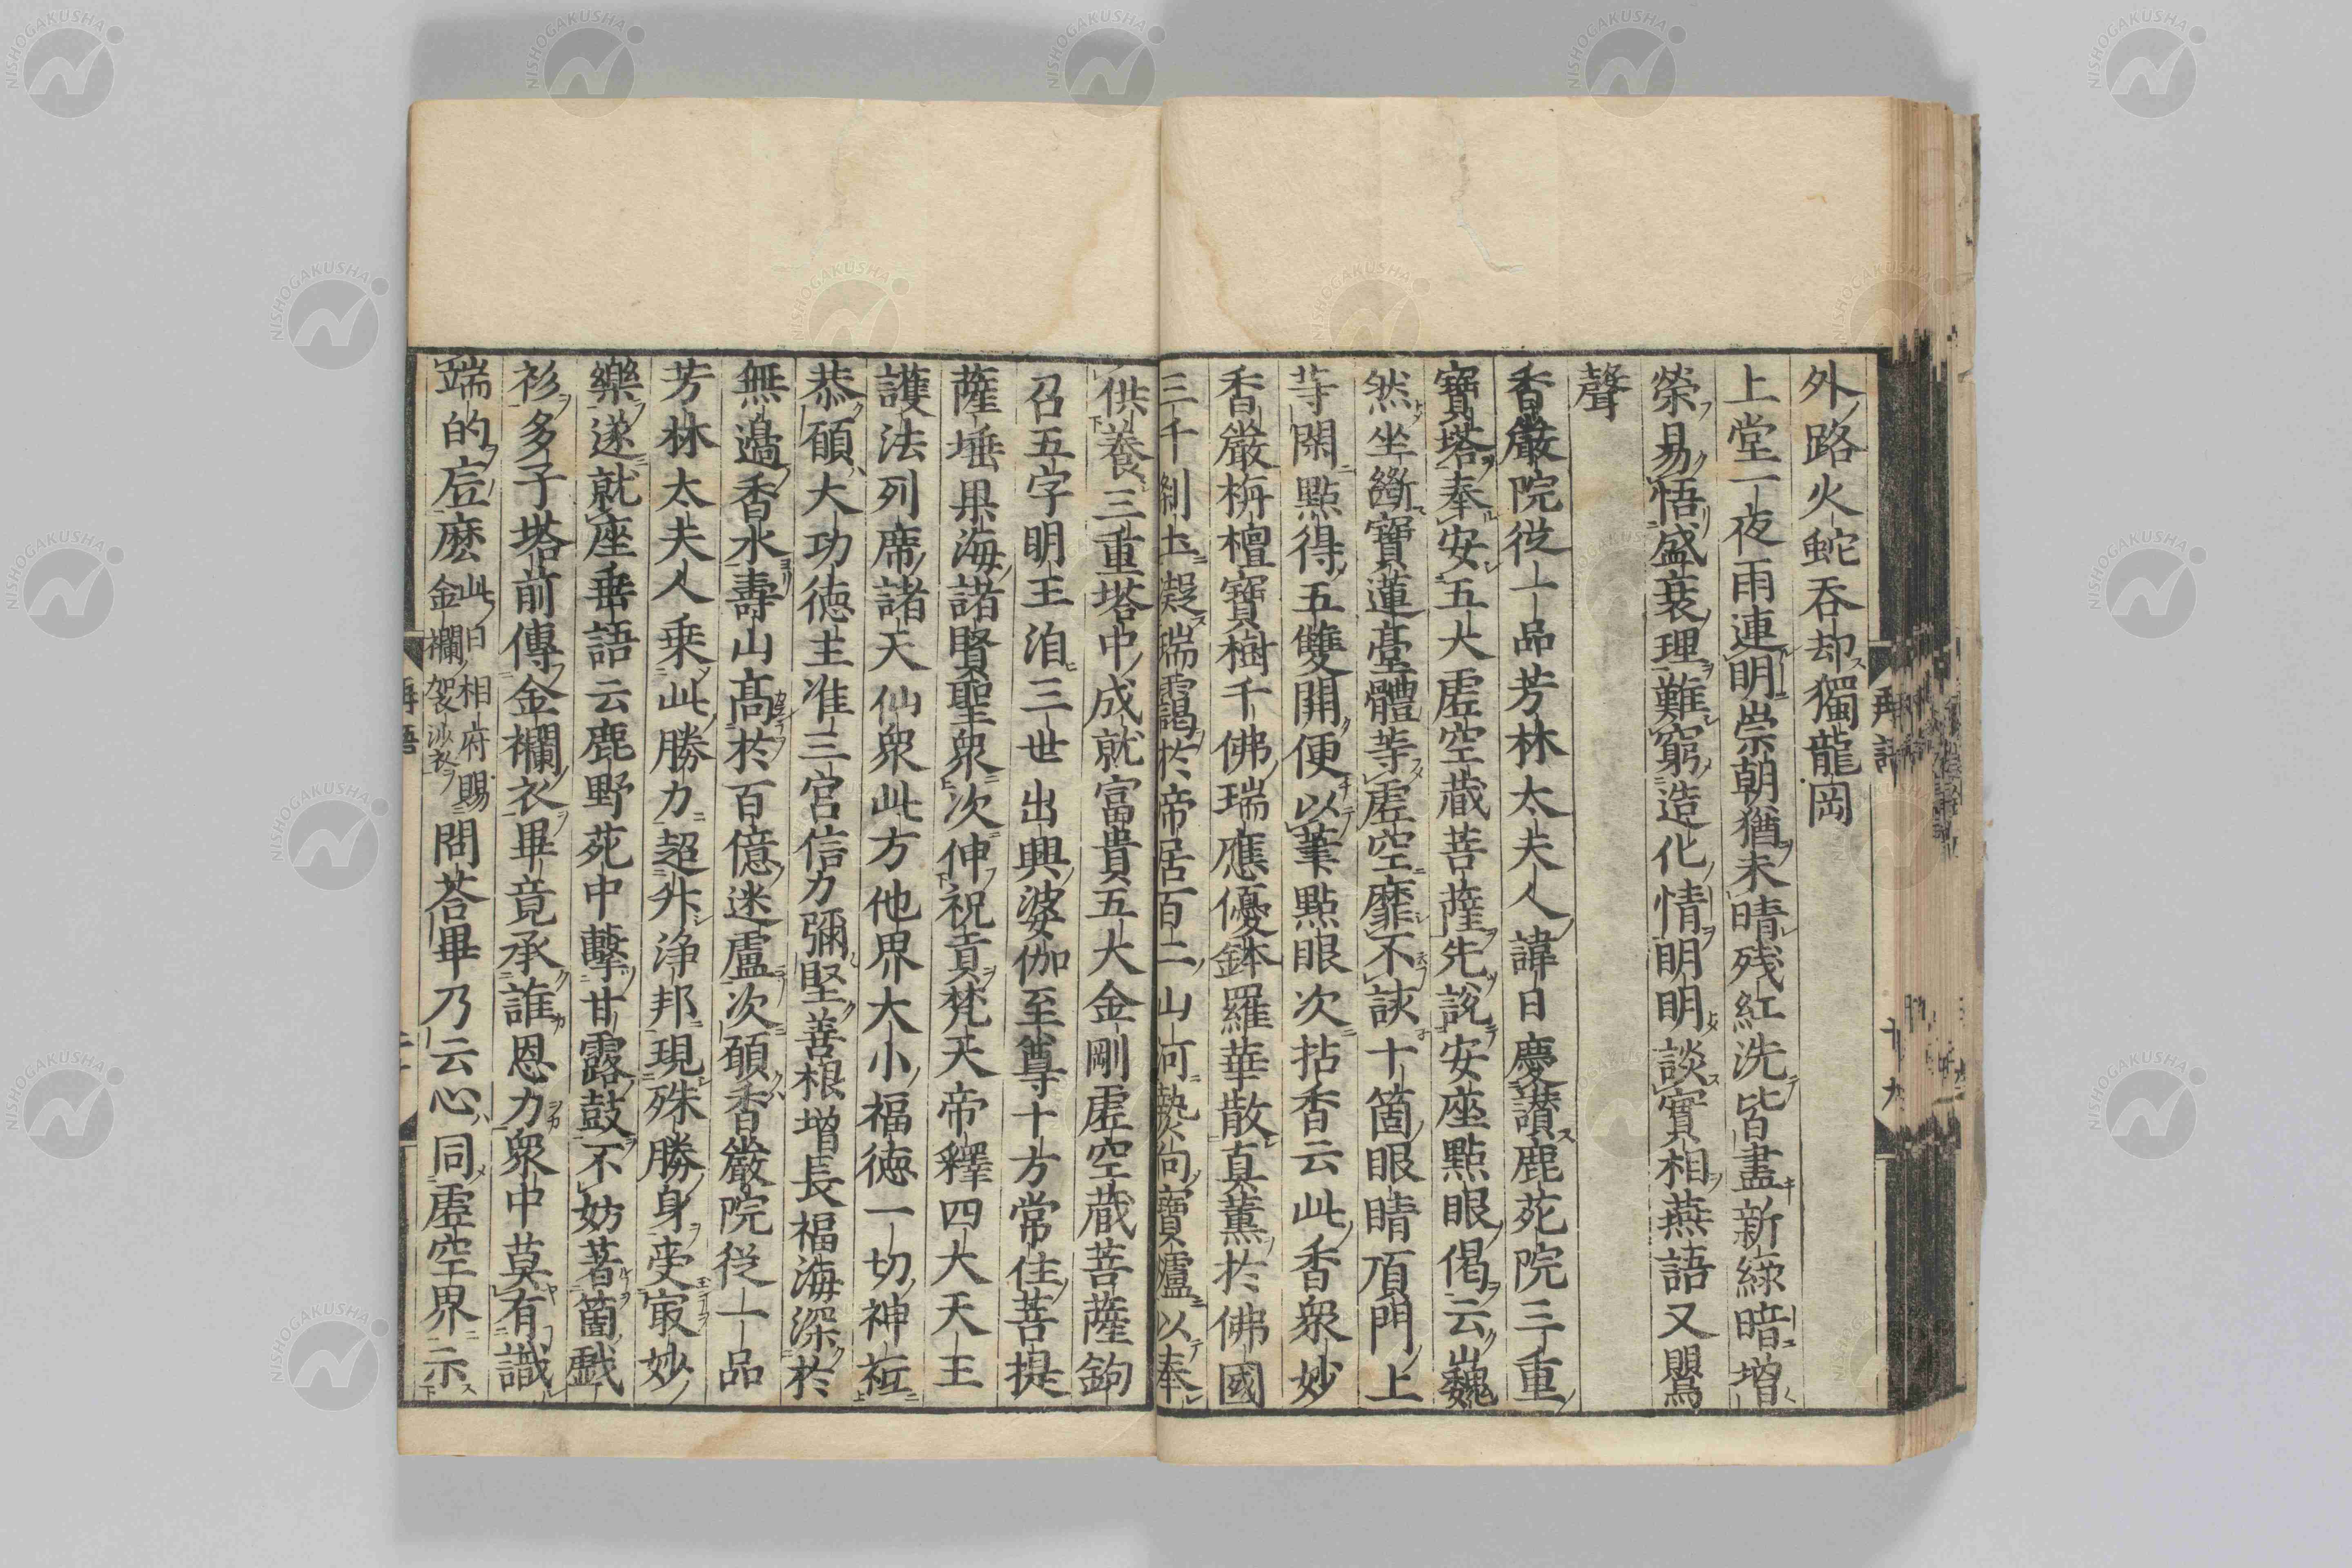 外路火蛇吞却獨龍岡
上堂一夜雨連明崇朝猶未晴残紅洗皆盡新綠暗増
榮易悟盛衰理難窮造化情明明談實相燕語又鸎
聲
香嚴院従一品芳林太夫人諱日慶讃鹿苑院三重
寶塔奉安五大虚空蔵菩薩先説安座點眼偈云巍
然坐斷寶蓮臺體等虚空靡不該十箇眼睛頂門上
等閑點得五雙開便以筆點眼次拈香云此香衆妙
香嚴栴檀寶樹千佛瑞應優鉢羅華散真薫於佛國
三千刹土凝瑞靄於帝居百二山河爇向寶爐以奉
供養三重塔中成就富貴五大金剛虚空蔵菩薩鉤
召五字明王洎三世出興婆伽至尊十方常住菩提
薩埵果海諸賢聖衆次伸祝貢梵天帝釋四大天王
護法列席諸天仙衆此方他界大小福徳一切神祇
恭願大功徳主准三宮信力彌堅善根増長福海深於
無邊香水壽山高於百億迷盧次願香嚴院従一品
芳林太夫人乗此勝力超升浄邦現殊勝身受最妙
樂遂就座垂語云鹿野苑中擊甘露鼓不妨著箇戯
衫多子塔前傳金襴衣畢竟承誰恩力衆中莫有識
端的底麽此日相府賜金襴袈裟衣問荅畢乃云心同虚空界示
再語
十九
NISHOGAKUSHA